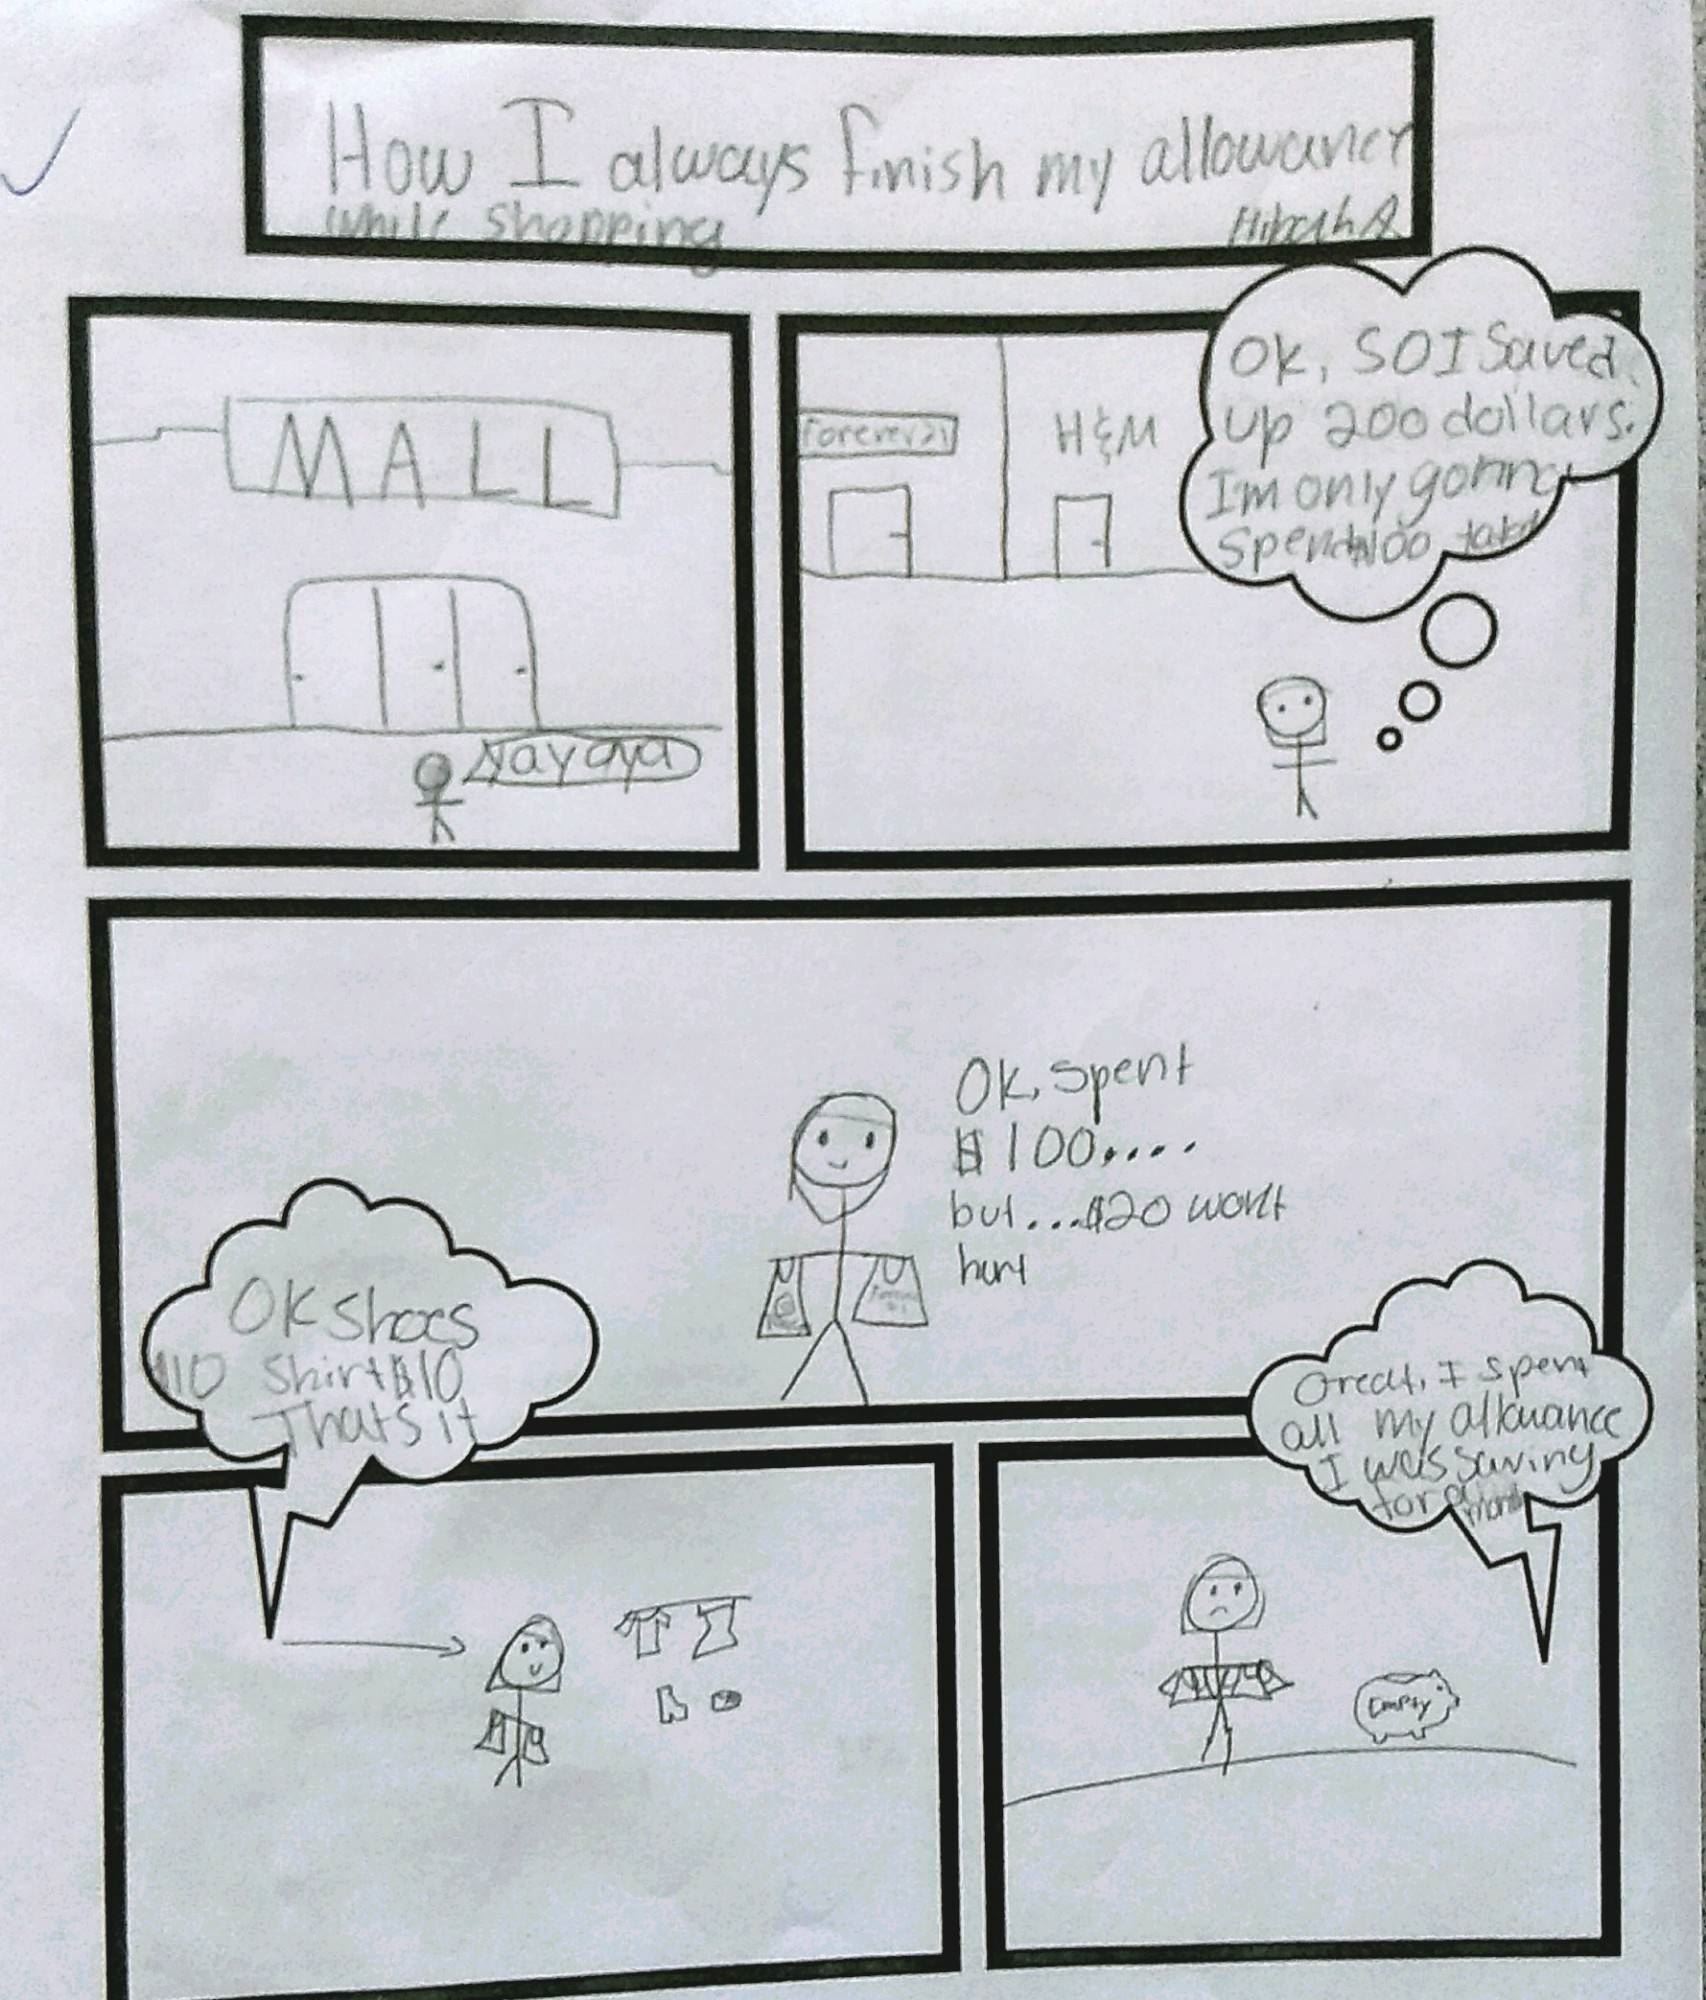 How I always finish my allowance
while shopping
Hibah A
MALL
Yayaya
Forever 21
H&M
Ok, SO I saved
up 200 dollars.
I'm only gonna
spend $100
Ok, spent
$100....
but...$20 wont
hurt
OK shoes
$10 shirt $10
Thats it
Great, I spent
all my allowance
I was saving
for
Empty